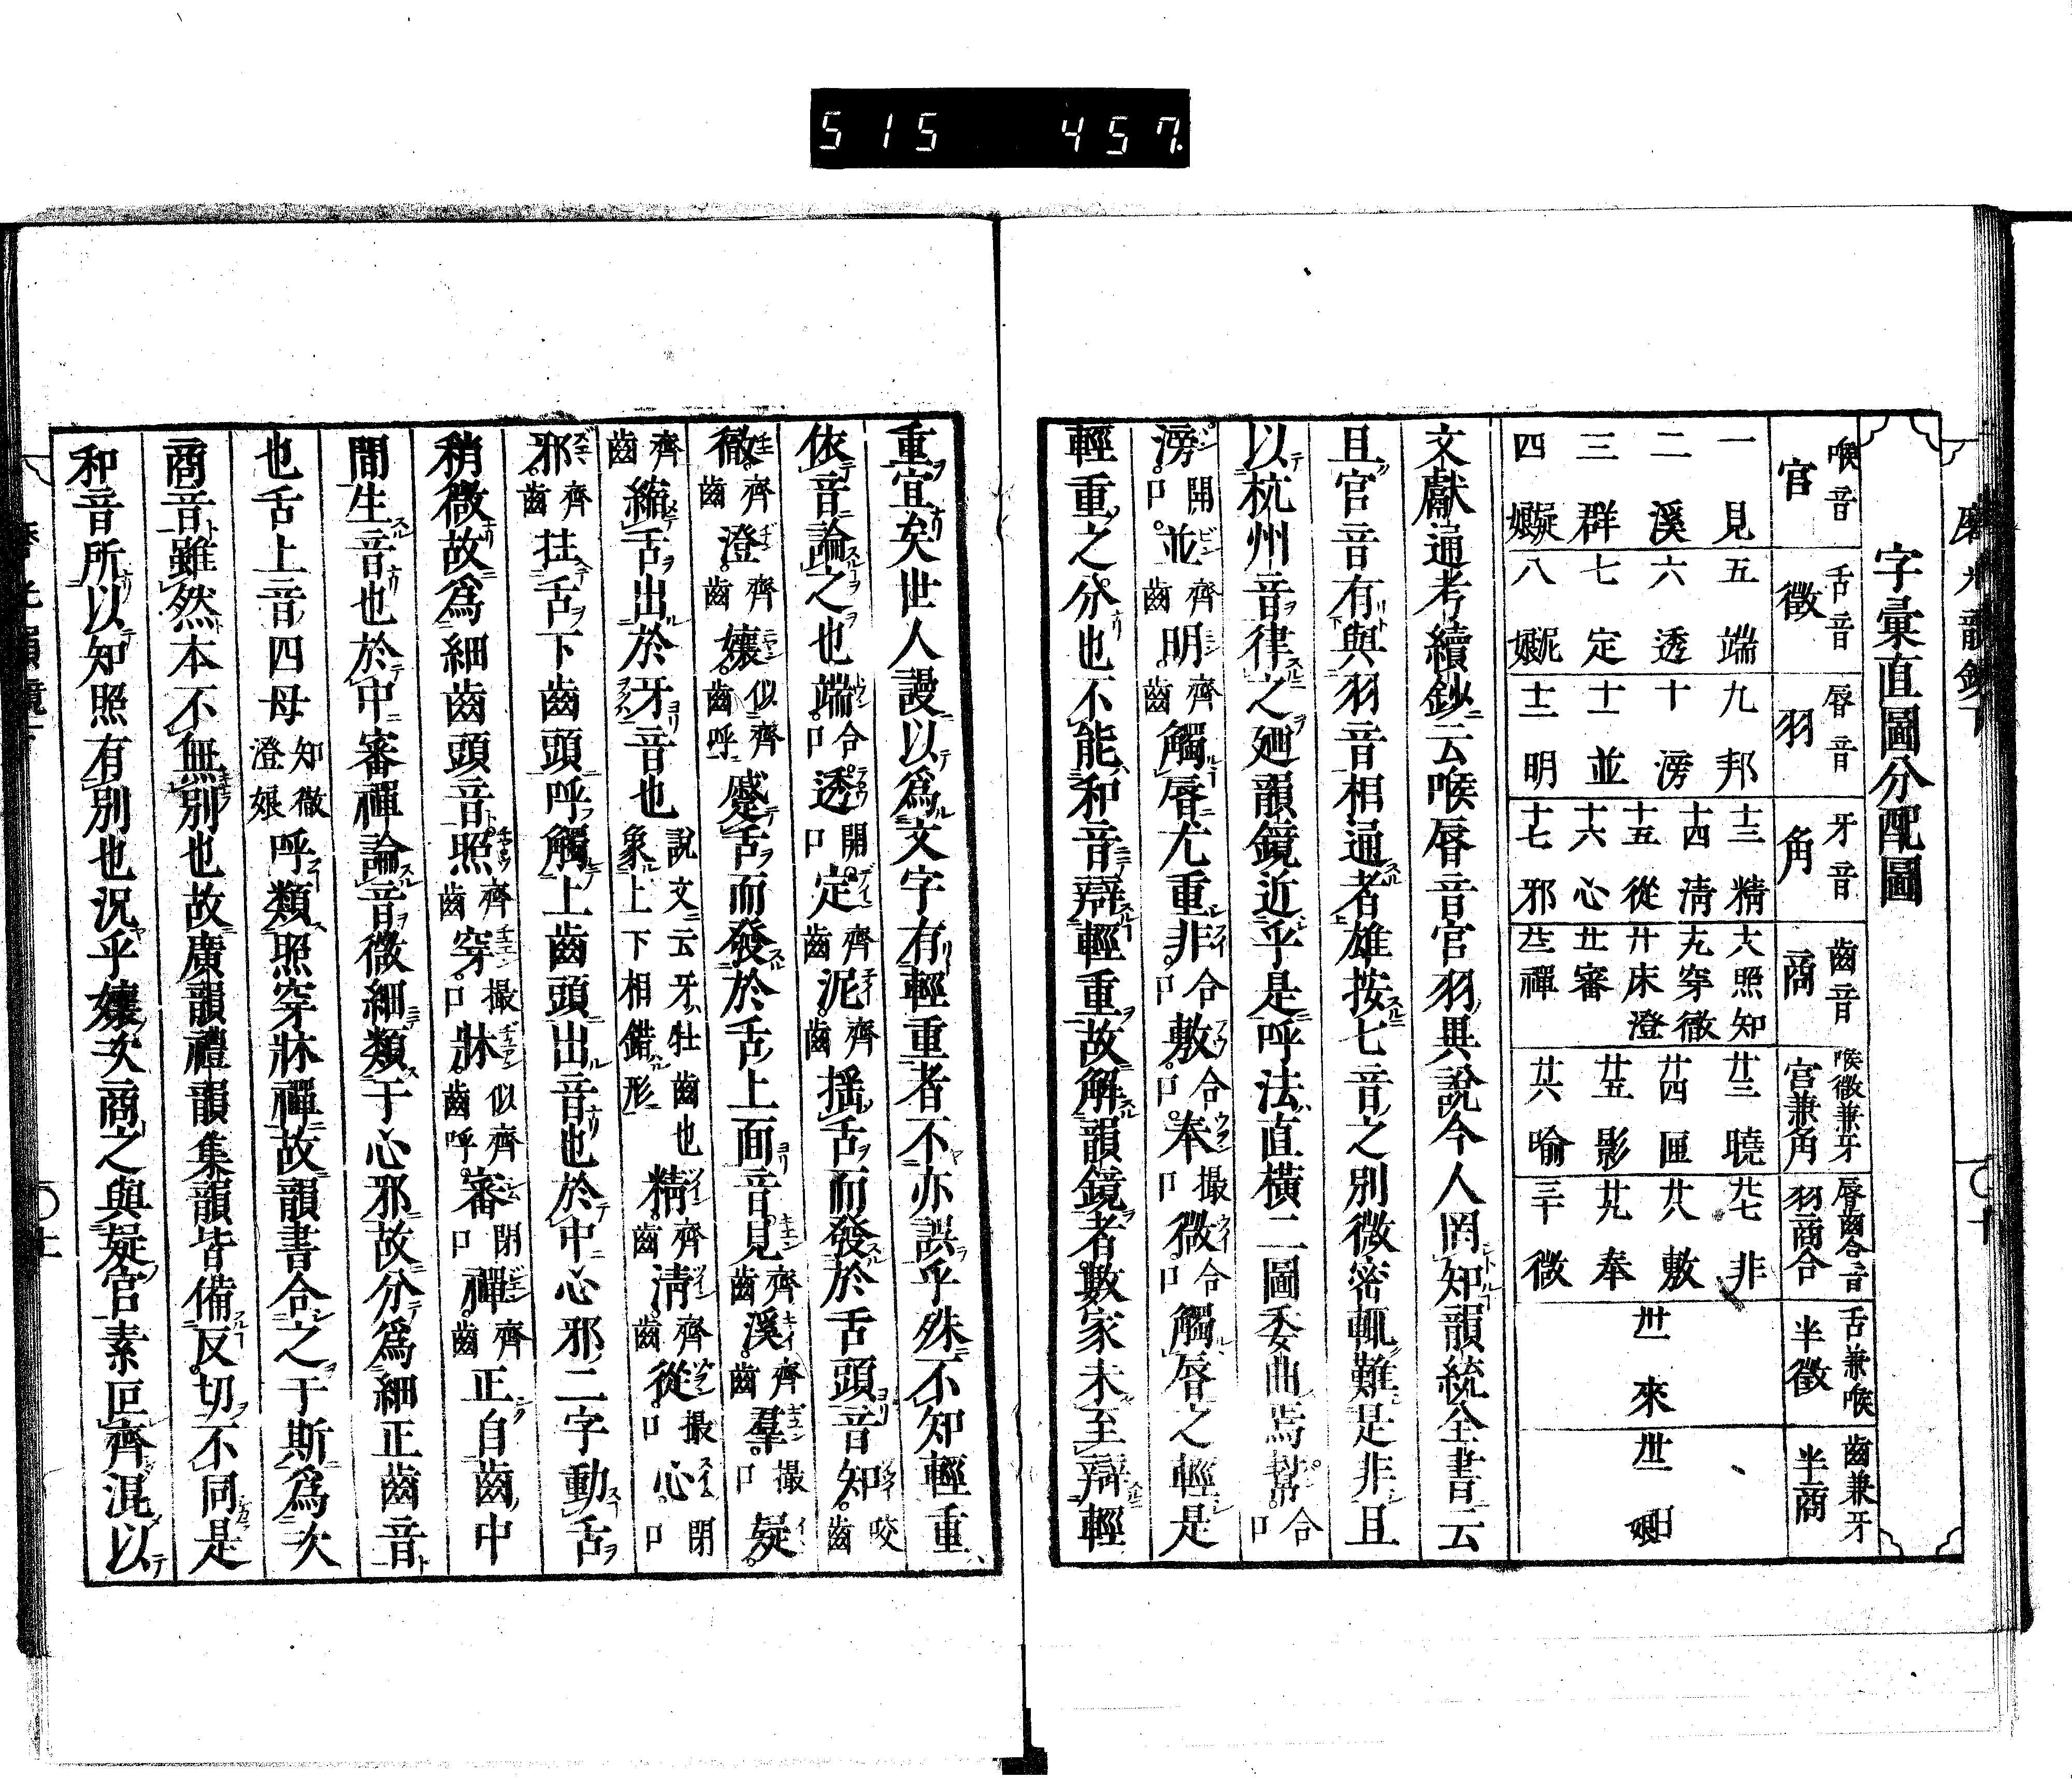 515 457
字彙直圖分配圖
喉音 宮 一見 二溪 三群 四疑
舌音 徵 五端 六透 七定 八泥
脣音 羽 九邦 十滂 十一並 十二明
牙音 角 十三精 十四清 十五從 十六心 十七邪
齒音 商 十八照知 十九穿徹 廿床澄 廿一審 廿二禪
喉徵兼牙 宮兼角 廿三曉 廿四匣 廿五影 廿六喻
脣齒合音 羽商合 廿七非 廿八敷 廿九奉 三十微
舌兼喉 半徵 卅一來
齒兼牙 半商 卅二日
文獻通考續鈔云喉脣音宮羽異說今人罔知韻統全書云
且宮音有與羽音相通者雄按七音之別微密輒難是非且
以杭州音律之廻韻鏡近乎是呼法直橫二圖委曲焉幫合口
滂開口並齊齒明齊齒觸脣尤重非合口敷合口奉撮口微合口觸脣之輕是
輕重之分也不能和音辯輕重故解韻鏡者數家未至辯輕
重宜矣世人謾以爲文字有輕重者不亦誤乎殊不知輕重
依音論之也端合口透開口定齊齒泥齊齒搖舌而發於舌頭音知咬齒
徹齊齒澄齊齒孃似齊齒呼蹙舌而發於舌上面音見齊齒溪齊齒羣撮口疑
齊齒縮舌出於牙音也說文云牙牡齒也象上下相錯形精齊齒清齊齒從撮口心閉口
邪齊齒拄舌下齒頭呼觸上齒頭出音也於中心邪二字動舌
稍微故爲細齒頭音照齊齒穿撮口牀似齊齒呼審閉口禪齊齒正自齒中
間生音也於中審禪論音微細類于心邪故分爲細正齒音
也舌上音四母知徹澄娘呼類照穿牀禪故韻書合之于斯爲次
商音雖然本不無別也故廣韻禮韻集韻皆備反切不同是
和音所以知照有別也況乎孃次商之與疑宮素叵齊混以